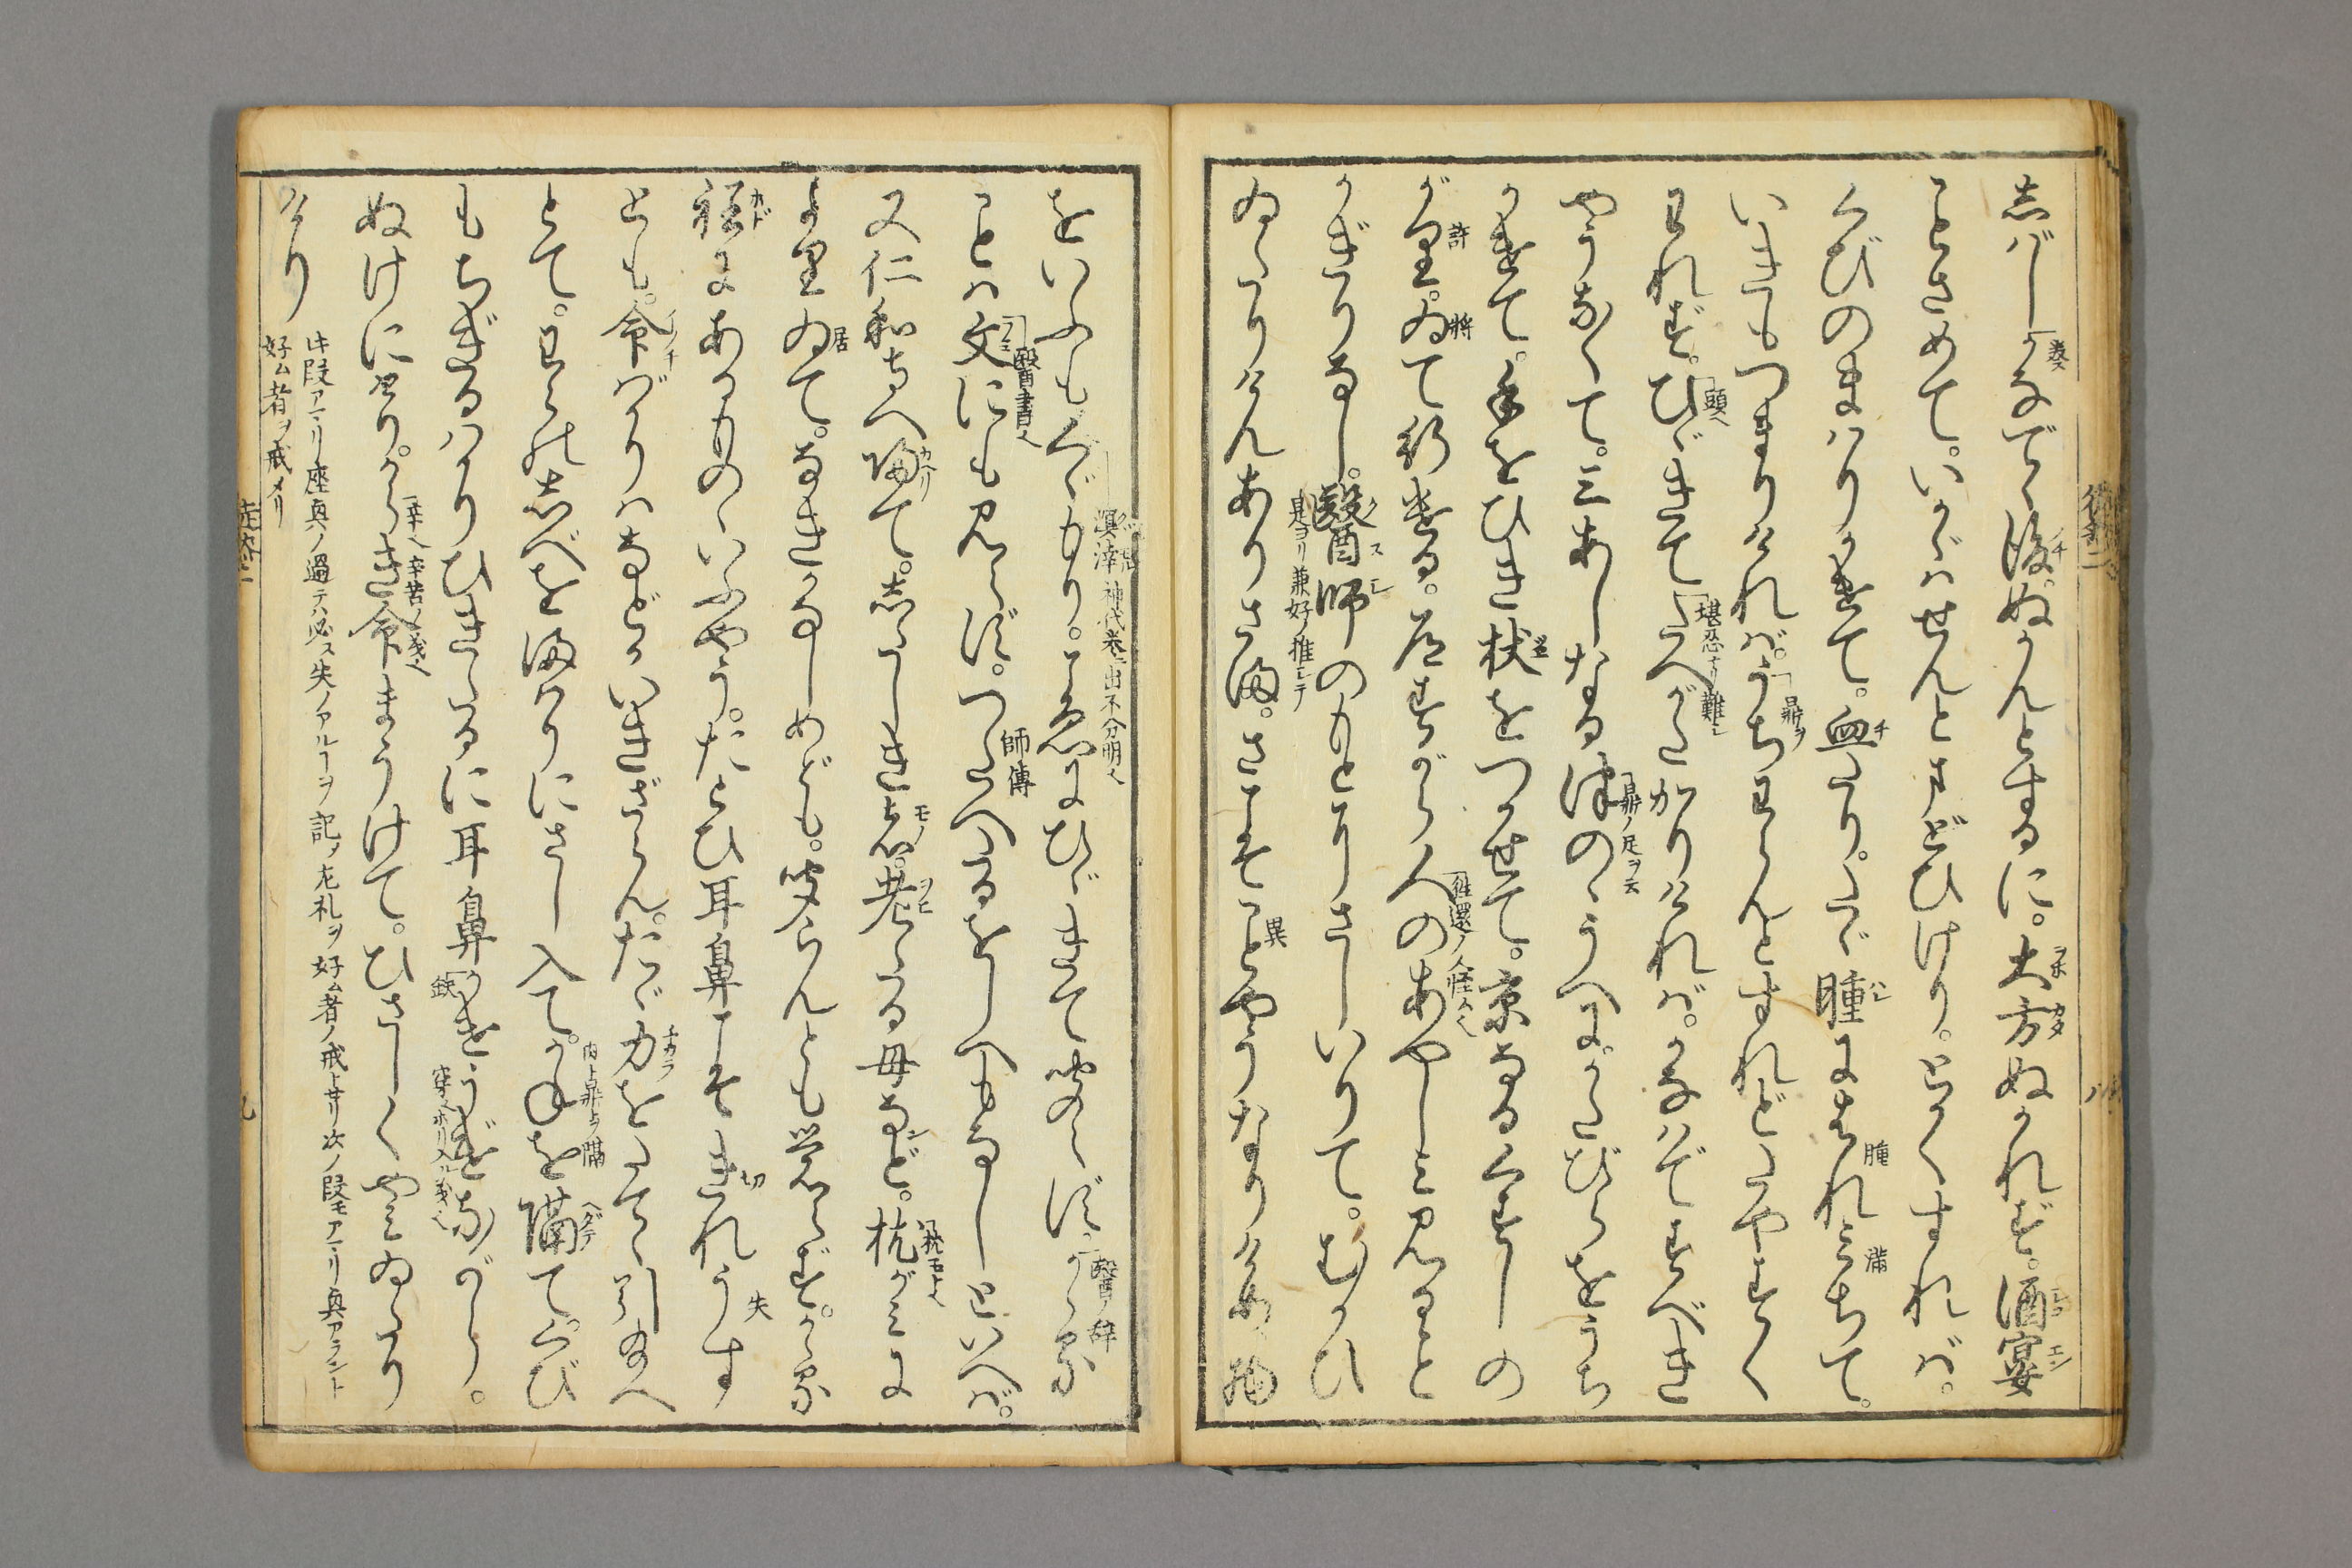 志ばしかなでゝ後。ぬかんとするに。大方ぬかれず。酒宴
ことさめて。いかゞはせんとまどひけり。とかくすれば。
くびのまはりかけて。血たり。たゞ腫にはれみちて。
いきもつまりければ。うちわらんとすれどたやすく
われず。ひゞきてたへがたかりければ。かなはですべき
やうなくて。三あしなる津のゝうへに。かたびらをうち
かけて。手をひき杖をつかせて。京なるくすしの
がり。ゐて行ける。道すがら人のあやしみ見ること
かぎりなし。醫師のもとにさしいりて。むかひ
ゐたりけんありさま。さこそことやうなりけめ。物
をいふもくゞもり。こゑにひゞきて聞えず。かゝる
ことは文にも見えず。つたへたるをしへもなしといへば。
又仁和寺へ帰て。志たしき者。老たる母など。枕がみに
より居ゐて。なきかなしめども。聞らんとも覚えず。かゝる
程にあるものゝいふやう。たとひ耳鼻こそきれうす
とも。命ばかりはなどかいきざらん。たゞ力をたてゝ引給へ
とて。わらの志べをまはりにさし入て。かねを隔て。くび
もちぎるばかりひきたるに耳鼻かけうげながら。
ぬけにけり。からき命まうけて。ひさしくやみゐたり
けり
此段アマリ座興ノ過テハ必ス失ノアルヿヲ記ノ尢礼ヲ好ム者ノ戒トセリ次ノ段モアマリ興アラント
好ム者ヲ戒メリ